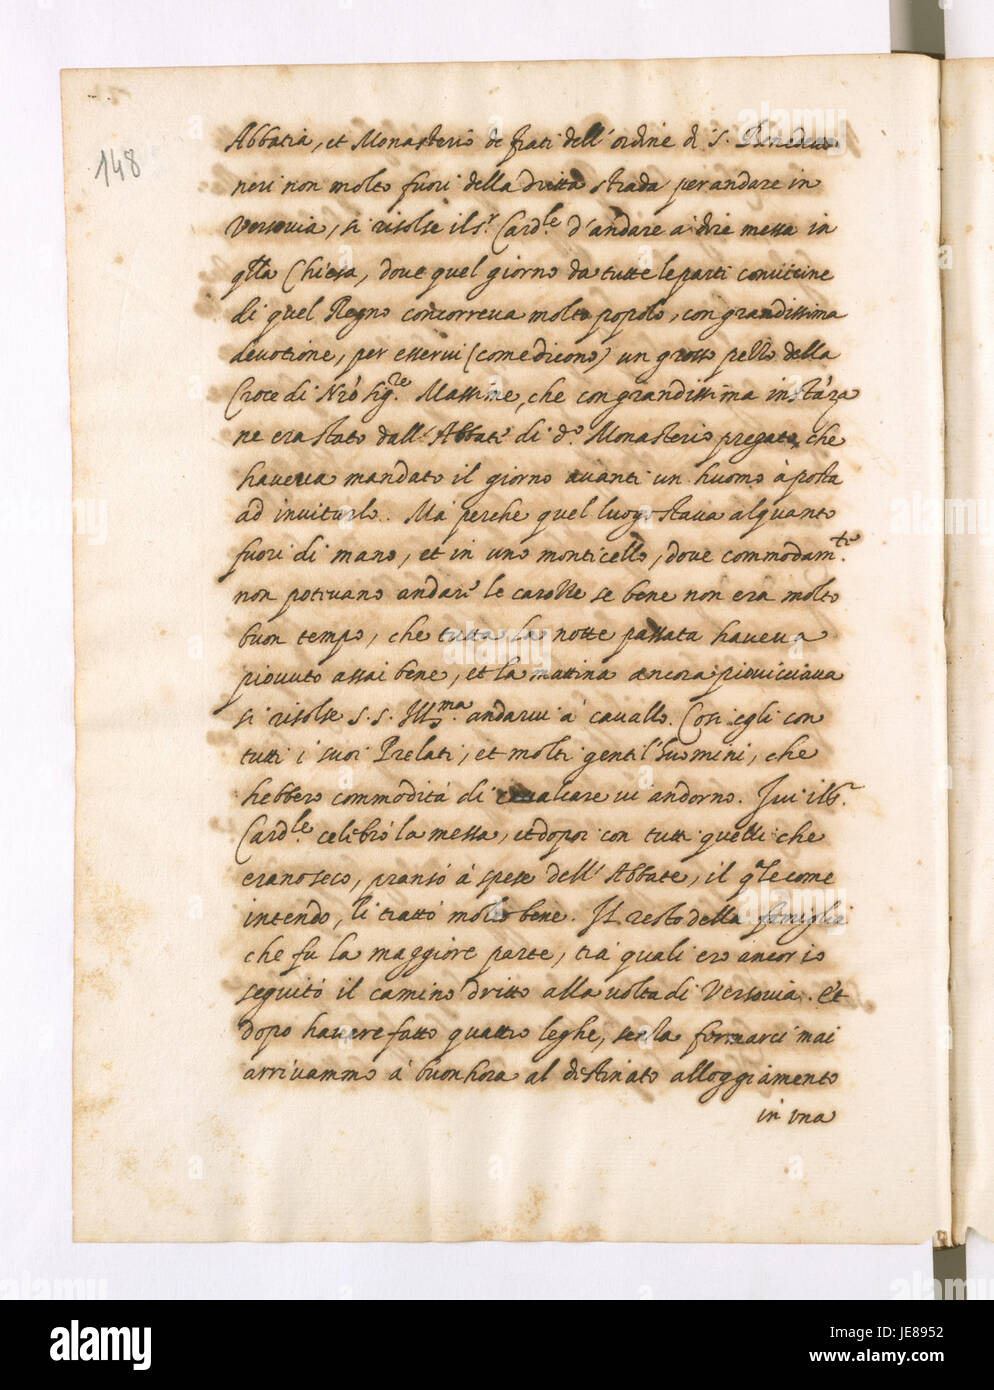 148
Abbatia, et Monasterio de frati dell'ordine di S. Benedetto
neri non molto fuori della dritta strada per andare in
Versovia, si risolse il s.r Card.le d'andare a dire messa in
q.lla Chiesa, dove quel giorno da tutte le parti convicine
di quel Regno concorreva molto popolo, con grandissima
devotione, per esservi (come dicono) un grosso pezzo della
Croce di Nrõ Sig.re Massime, che con grandissima instãza
ne era stato dall'Abbate di d.o Monasterio pregato, che
haveva mandato il giorno avanti un huomo à posta
ad invitarlo. Ma perche quel luogo stava alquanto
fuori di mano, et in uno monticello, dove commodam.te
non potevano andare le carozze se bene non era molto
buon tempo, che tutta la notte passata haveva
piovuto assai bene, et la mattina ancora piovicciava
si risolse S. S. Ill.ma andarvi à cavallo. Cosi egli con
tutti i suoi Prelati, et molti gentil'huomini, che
hebbero commodità di cavalcare vi andorno. Ivi il S.r
Card.le celebrò la messa, et dopoi con tutti quelli che
erano seco, pransò à spese dell'Abbate, il q.le come
intendo, li trattò molto bene. Il resto della famiglia
che fu la maggiore parte, tra quali ero ancor io
seguitò il camino dritto alla volta di Versovia. Et
dopo havere fatto quattro leghe, senza fermarci mai
arrivammo à buon'hora al destinato alloggiamento
in una
alamy
alamy
Image ID: JE8952
www.alamy.com